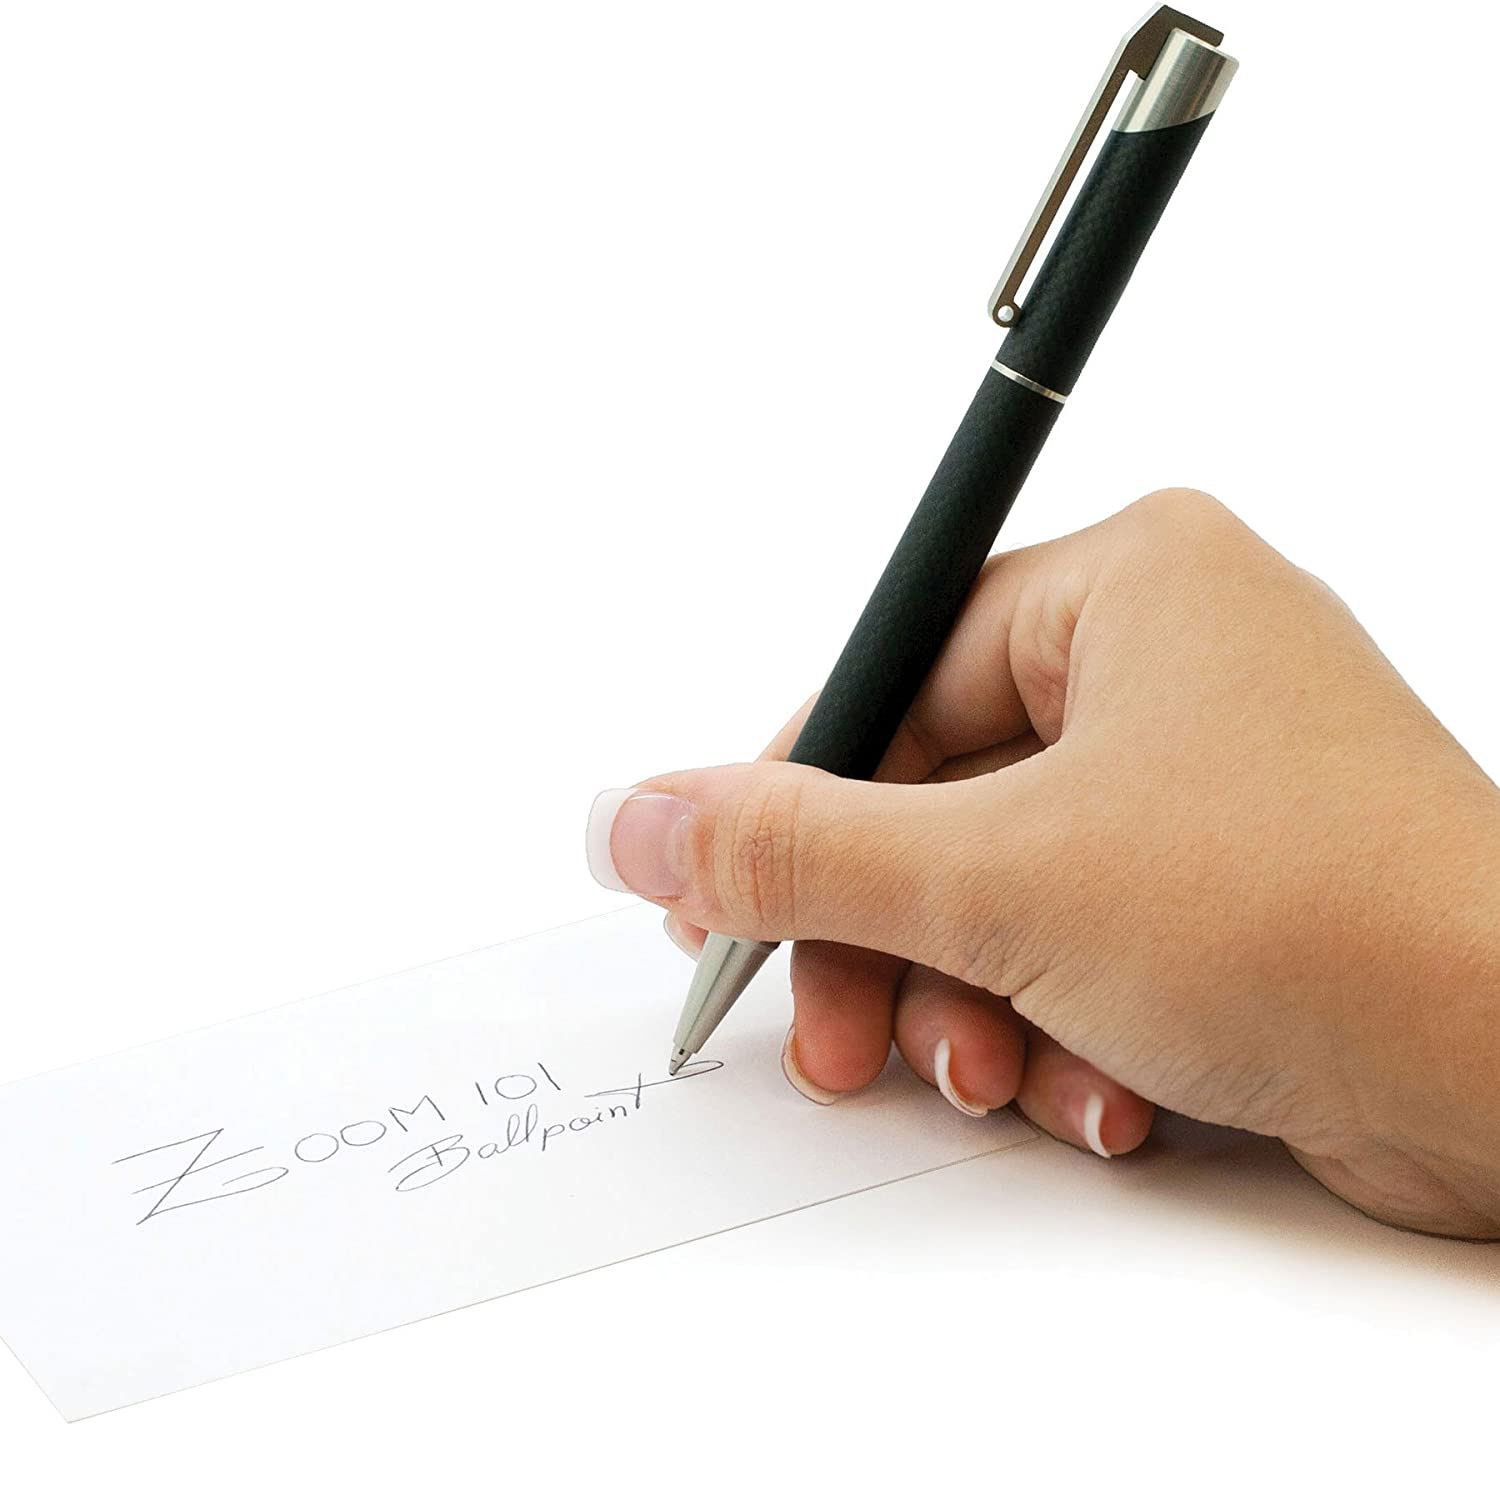 ZOOM 101
Ballpoint